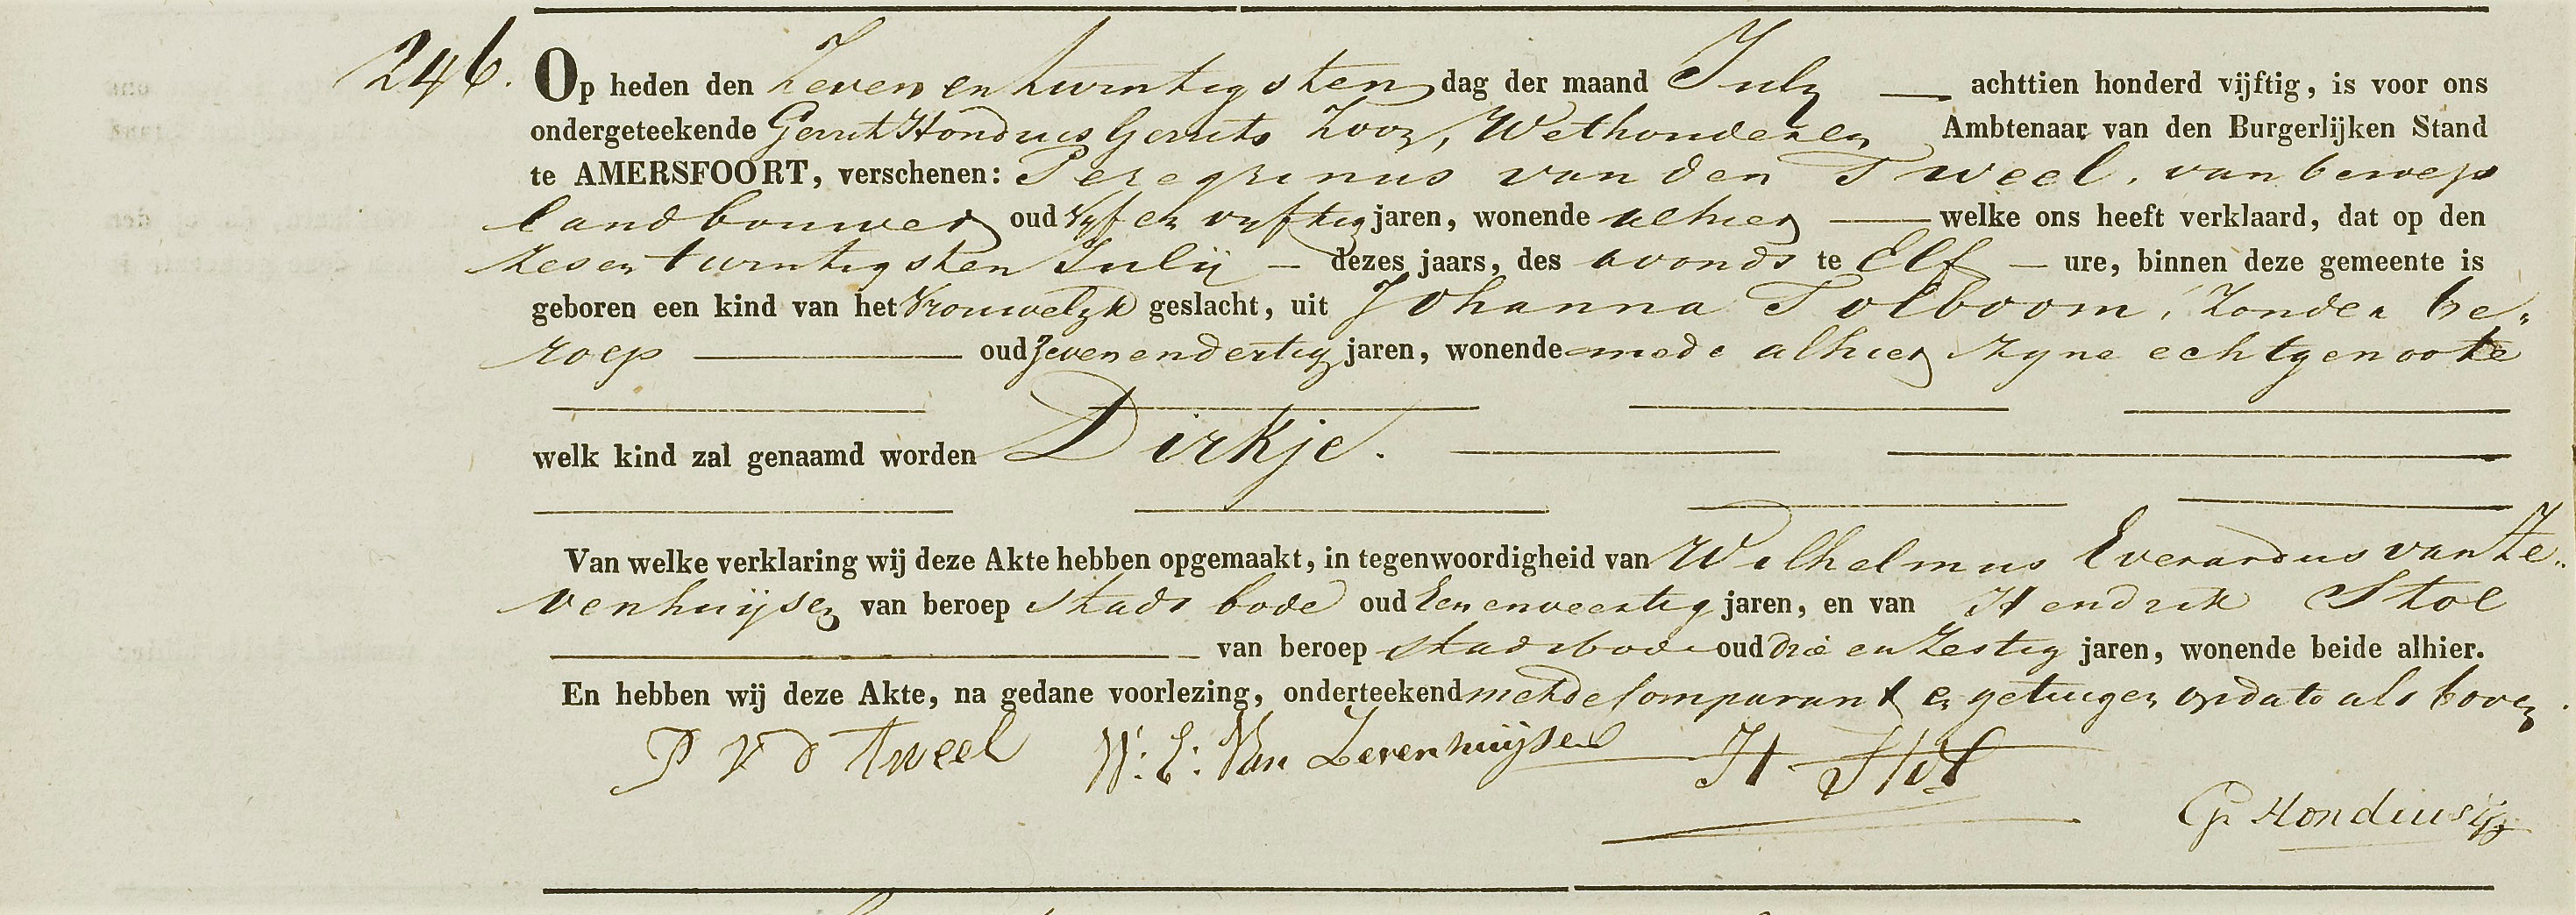 246. Op heden den Zeven en twintigsten dag der maand July — achttien honderd vijftig, is voor ons
ondergeteekende Gerrit Hondius Gerrits Zoon, Wethouder en Ambtenaar van den Burgerlijken Stand
te AMERSFOORT, verschenen: Peregrinus van den Tweel, van beroep
landbouwer oud vyf en vyftig jaren, wonende alhier — welke ons heeft verklaard, dat op den
zesentwintigsten Julij — dezes jaars, des avonds te Elf — ure, binnen deze gemeente is
geboren een kind van het Vrouwelyk geslacht, uit Johanna Tolboom, Zonder be-
roep — oud Zeven en dertig jaren, wonende mede alhier zyne echtgenoote
welk kind zal genaamd worden Dirkje.
Van welke verklaring wij deze Akte hebben opgemaakt, in tegenwoordigheid van Wilhelmus Everardus van Ze-
venhuijsen van beroep stads bode oud Een en veertig jaren, en van Hendrik Stol
— van beroep stadsbode oud drie en Zestig jaren, wonende beide alhier.
En hebben wij deze Akte, na gedane voorlezing, onderteekend met de Comparant en getuigen op dato als boven.
P v d tweel W: E: Van Zevenhuijsen H Stol
G Hondius Gz